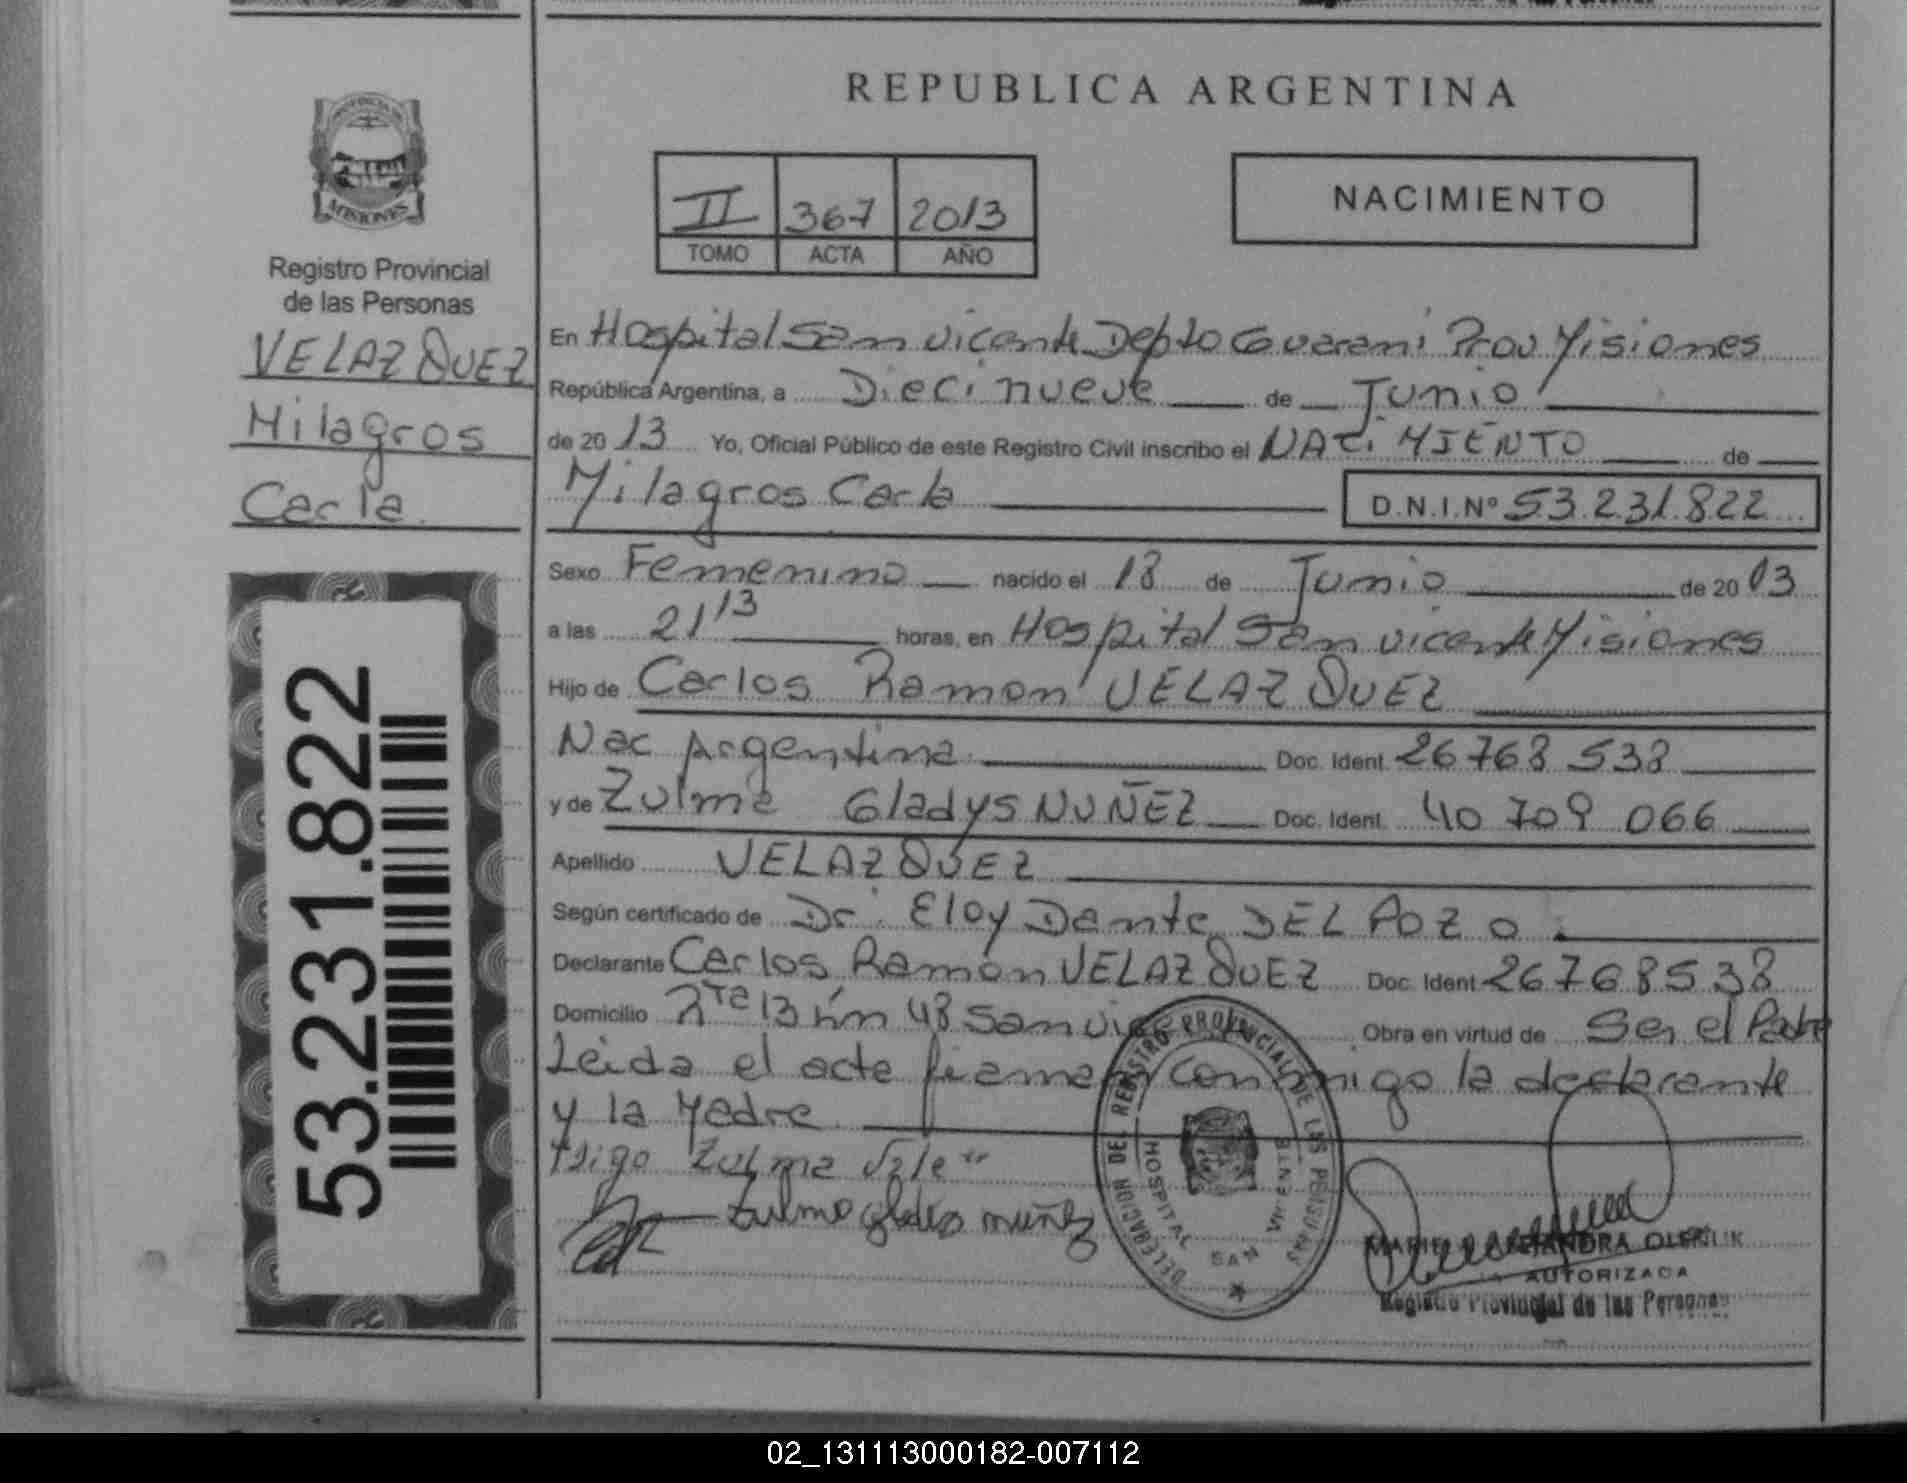 REPUBLICA ARGENTINA
PROVINCIA
MISIONES
Registro Provincial
de las Personas
VELAZQUEZ
Milagros
Carla
53.231.822
II 367 2013
TOMO ACTA AÑO
NACIMIENTO
En Hospital San Vicente Depto Guarani Prov Misiones
República Argentina, a Diecinueve de Junio
de 2013 Yo, Oficial Público de este Registro Civil inscribo el NACIMIENTO de
Milagros Carla D.N.I.Nº 53.231.822
Sexo Femenino nacido el 18 de Junio de 20 13
a las 21 13 horas, en Hospital San Vicente Misiones
Hijo de Carlos Ramon VELAZQUEZ
Nac Argentina Doc. Ident. 26768 538
y de Zulma Gladys NUÑEZ Doc. Ident. 40 709 066
Apellido VELAZQUEZ
Según certificado de Dr. Eloy Dante DEL POZO
Declarante Carlos Ramon VELAZQUEZ Doc. Ident. 26768538
Domicilio Rta 13 km 48 San Vicente Obra en virtud de Ser el Padre
Leida el acta firman conmigo la declarante
y la Madre
Digo Zulma Vale"
Zulma Gladis nuñez
DELEGACION DEL REGISTRO PROVINCIAL DE LAS PERSONAS
HOSPITAL SAN VICENTE
ALEJANDRA
AUTORIZADA
Registro Provincial de las Personas
02_131113000182-007112